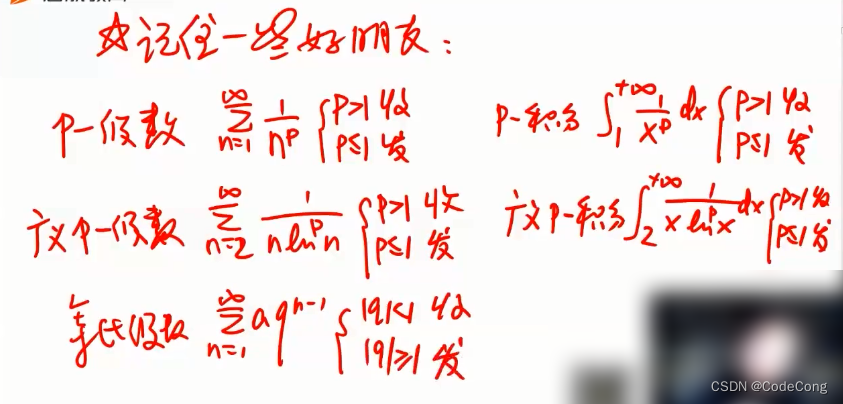 ☆记住一些好朋友：
P-级数 ∑_{n=1}^{∞} 1/n^p { P>1 收 P≤1 发
P-积分 ∫_1^{+∞} 1/x^p dx { P>1 收 P≤1 发
广义P-级数 ∑_{n=2}^{∞} 1/(n ln^p n) { P>1 收 P≤1 发
广义P-积分 ∫_2^{+∞} 1/(x ln^p x) dx { P>1 收 P≤1 发
等比级数 ∑_{n=1}^{∞} aq^{n-1} { |q|<1 收 |q|≥1 发
CSDN @CodeCong